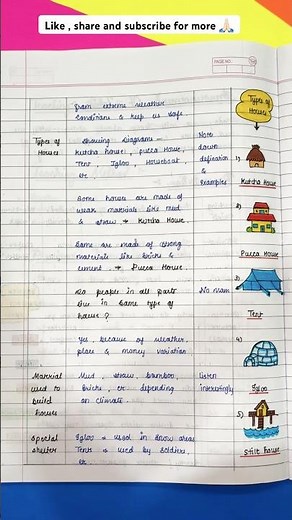 Like , share and subscribe for more 🙏🏻
PAGE NO.
from extreme weather
conditions & keep us safe
Types of
Houses
Showing Diagrams -
Kutcha house, pucca house,
Tent, Igloo, Houseboat,
etc
Note
down
defination
&
examples
Some houses are made of
weak materials like mud
& straw → Kutcha House
Some are made of strong
materials like bricks &
cement → Pucca House.
Do people in all parts
live in same type of
house ?
No mam
Yes, because of weather,
place & money variation
Material
used to
build
houses
Mud, straw, bamboo,
bricks, etc depending
on climate.
listen
interestingly
Special
shelter
Igloo = used in snow areas
Tents = used by soldiers,
etc
Types of
Houses
1)
Kutcha House
2)
Pucca House
3)
Tent
4)
Igloo
5)
Stilt house